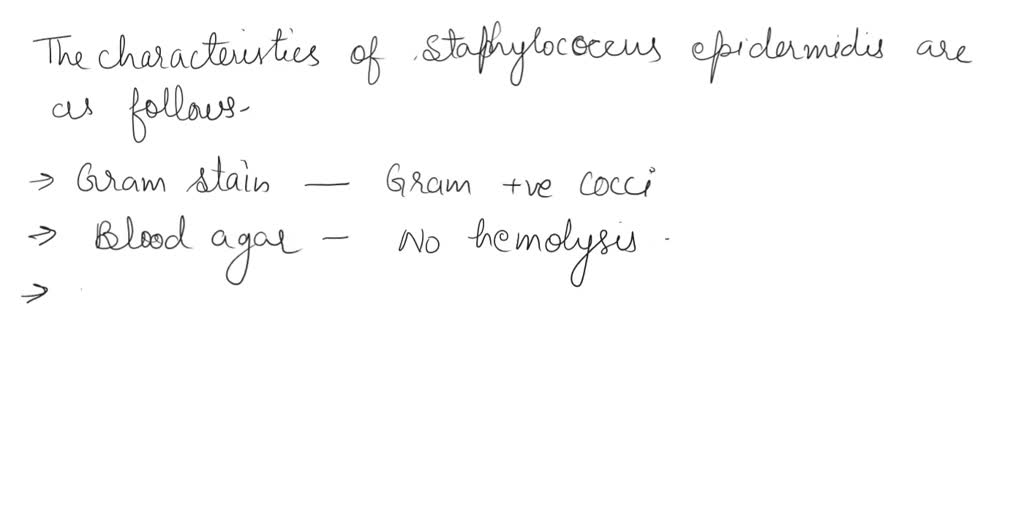 The characteristics of staphylococcus epidermidis are
as follows-
→ Gram stain — Gram +ve cocci
→ Blood agar - No hemolysis.
→